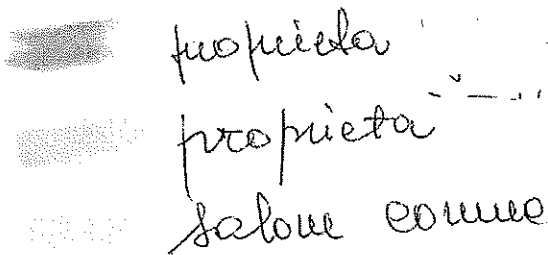 proprieta
proprieta
salone comune